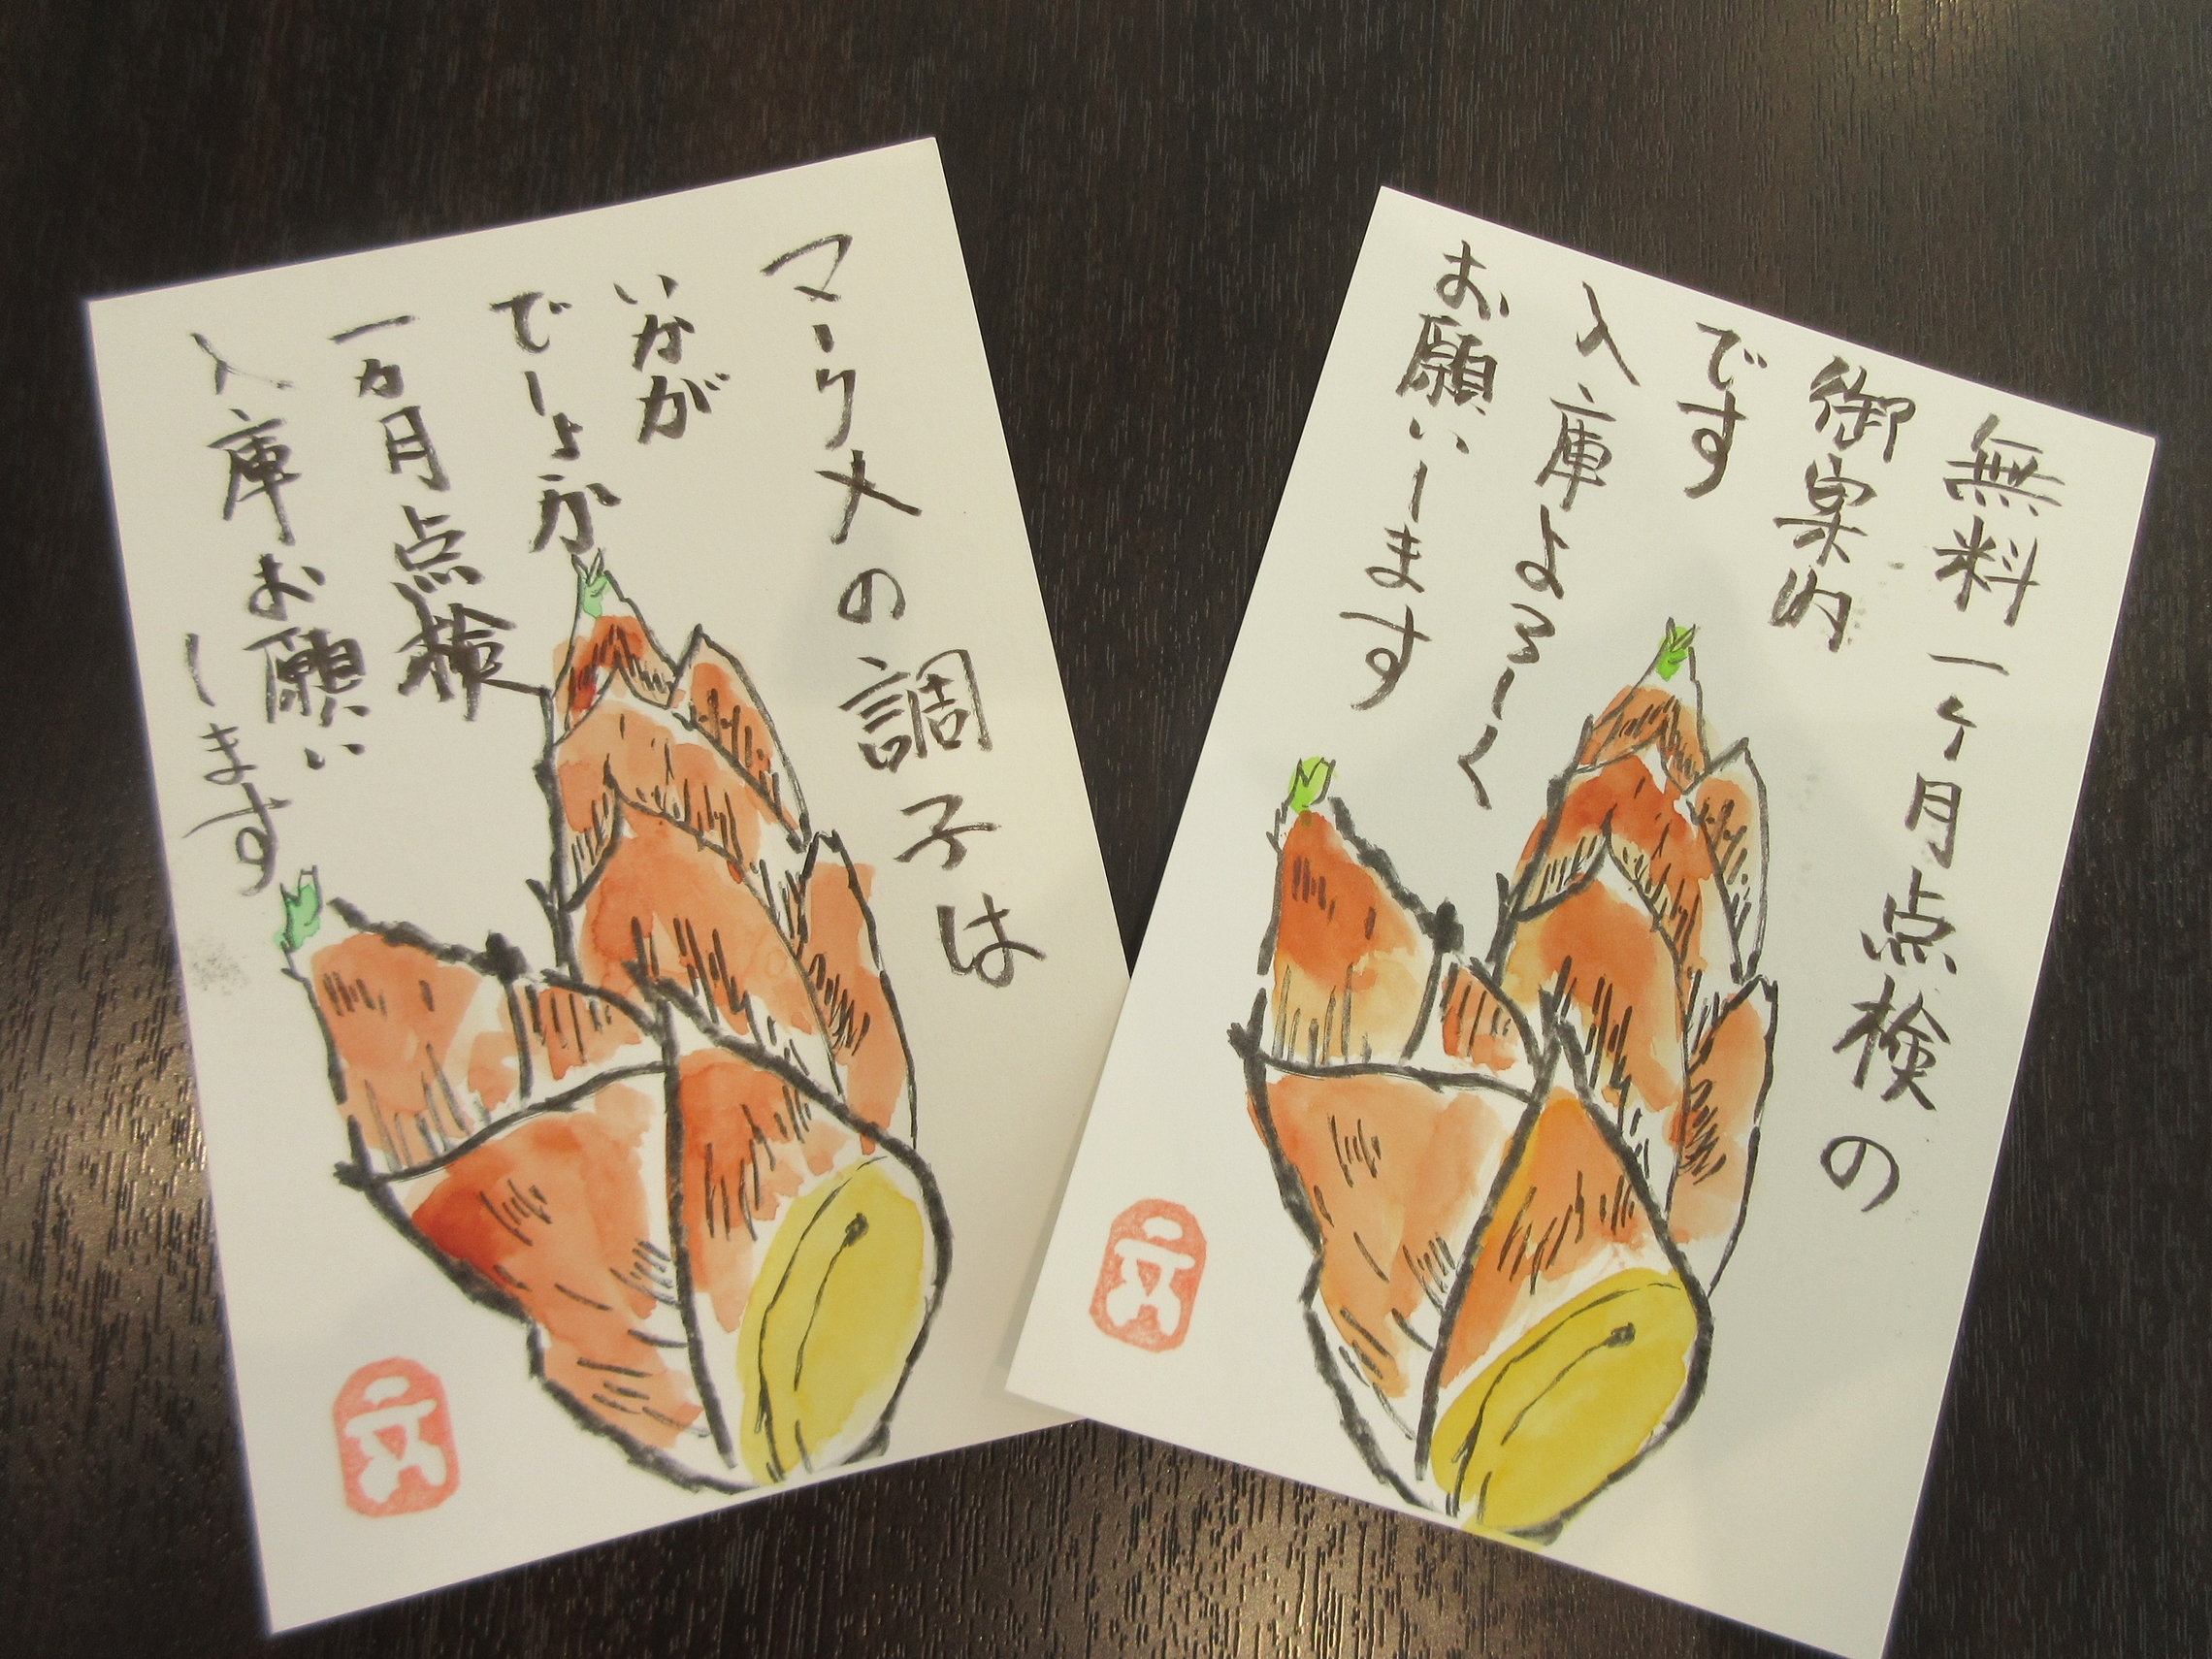 マークXの調子は
いかが
でしょうか
一ヵ月点検
入庫お願い
します
文
無料一ヶ月点検の
御案内
です
入庫よろしく
お願いします
文